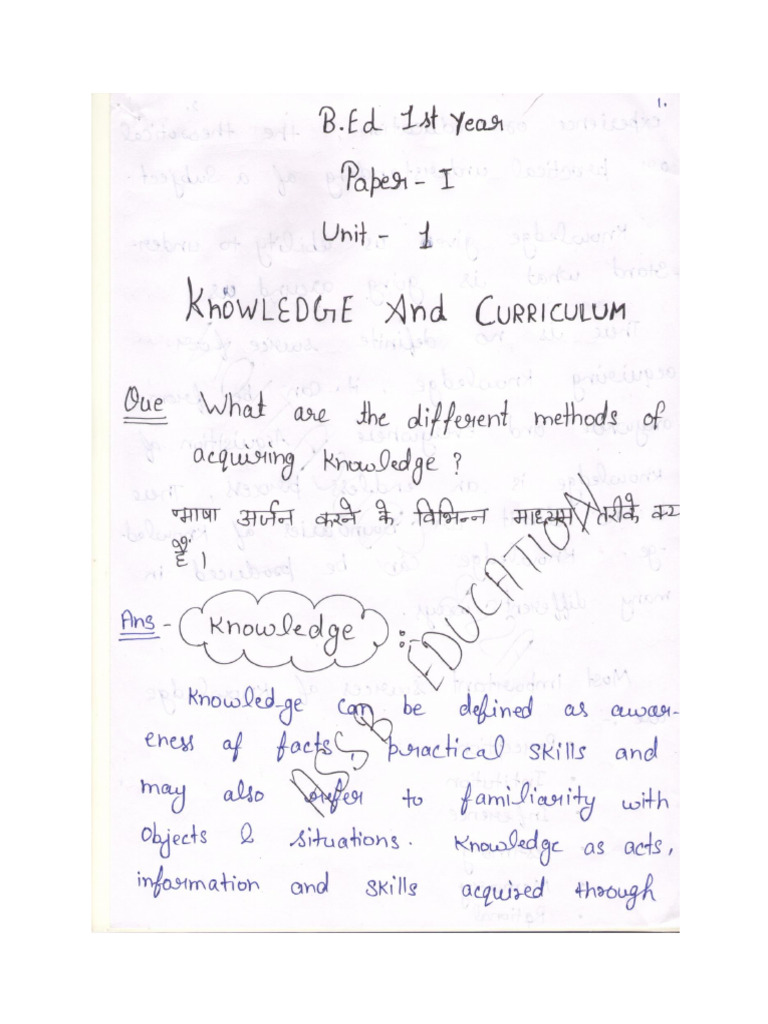 1.
B.Ed 1st Year
Paper - I
Unit - 1
KNOWLEDGE And CURRICULUM
Que What are the different methods of
acquiring knowledge ?
भाषा अर्जन करने के विभिन्न माध्यम तरीके क्य
हैं ।
Ans - Knowledge :
Knowled-ge can be defined as awar-
eness of facts, practical skills and
may also refer to familiarity with
objects & situations. Knowledge as acts,
information and skills acquired through
ASSB EDUCATION